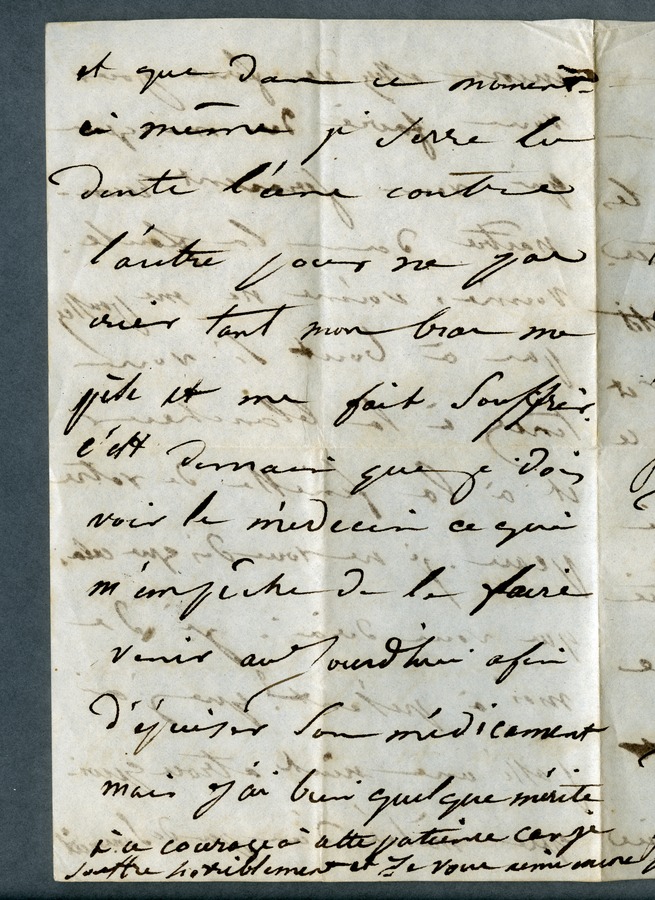 et que dans ce moment
ci même je serre les
dents l'une contre
l'autre pour ne pas
crier tant mon bras me
pèse et me fait souffrir.
c'est demain que je dois
voir le médecin ce qui
m'empêche de le faire
venir aujourd'hui afin
d'épuiser son médicament
mais j'ai bien quelque mérite
à ce courage à cette patience car je
souffre horriblement et je vous aime encore